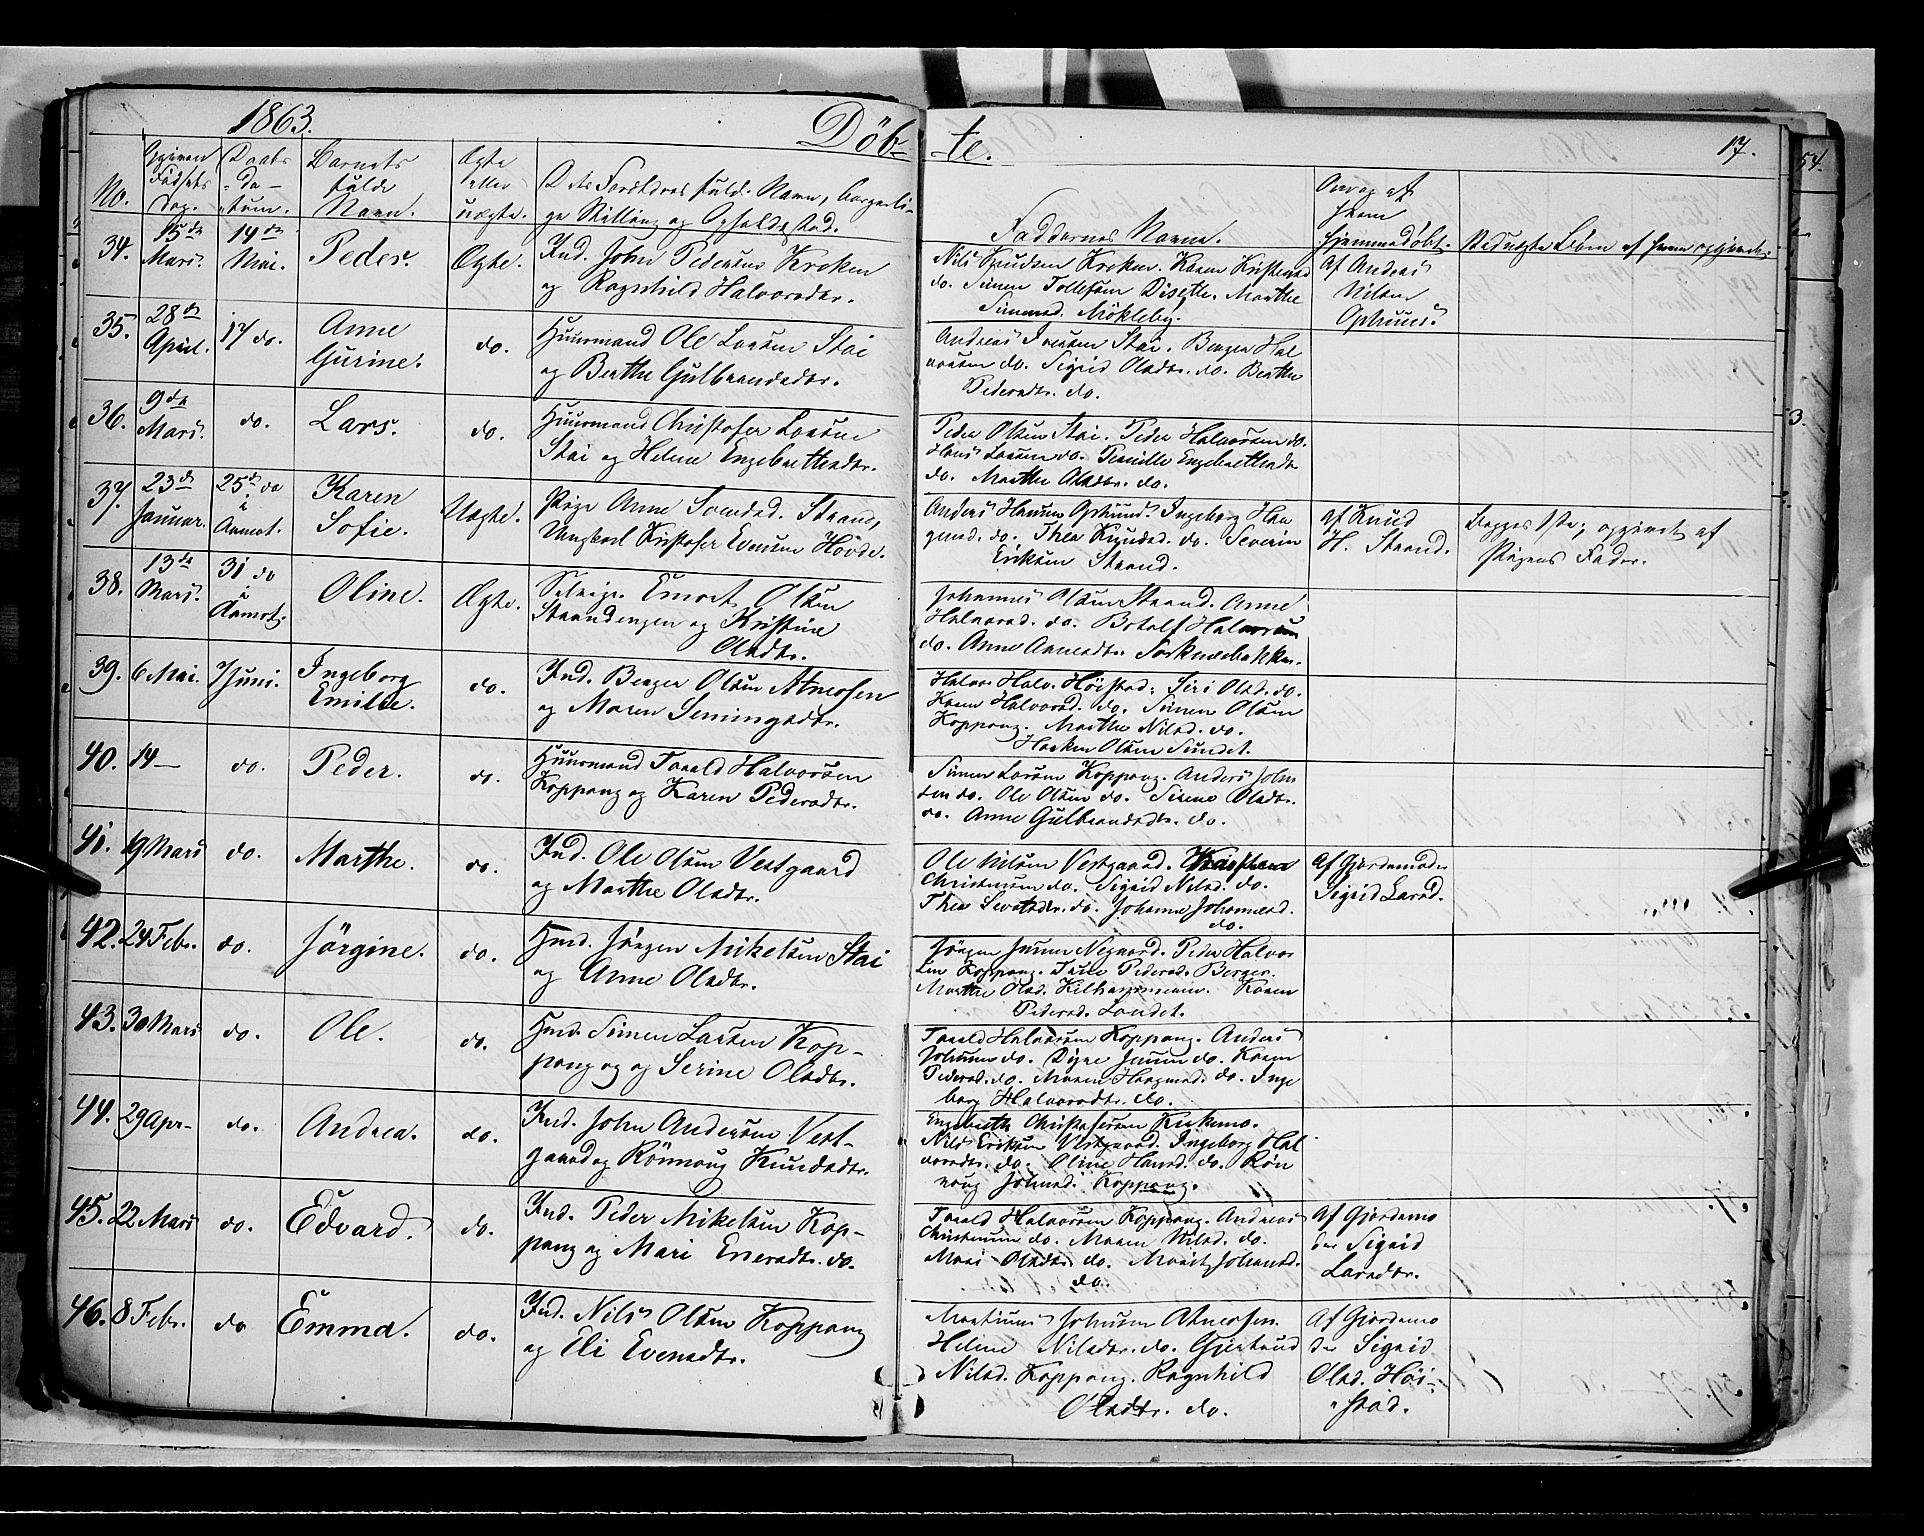 1863. Döb- te. 17.
No. Opgiven Fødsels Dag. Daabs da- tum. Barnets fulde Navn. Ægte eller uægte. Forældres fulde Navn, borgerlige Stilling og Opholdssted. Faddernes Navne. hjemmedøbt.
34. 15de Mars. 14de Mai. Peder. Ægte. Ind. John Pedersen Kroken
og Ragnhild Halvorsdtr.
Nils Knudsen Kroken. Karen
do. Simen Tollefsen Disethe. Marthe
Simensd. Møkleby.
Af Andreas
Nilsen
35. 28de April. 17 do. Anne Gurine. do. Huusmand Ole Larsen Stai
og Berthe Gulbrandsdtr.
Andreas Iversen Stai. Berger Hal
vorsen do. Sigrid Olsdtr. do. Berthe
Pedersdtr. do.
36. 9de Mars. do. Lars. do. Huusmand Christofer Larsen
Stai og Helene Engebrettsdtr.
Peder Olsen Stai. Peder Halvorsen do.
Hans Larsen do. Pernille Engebrettsdtr
do. Marthe Olsdtr. do.
37. 23de Januar. 25de do i Aamot. Karen Sofie. Uægte. Pige Anne Strand,
Ungkarl Kristofer Evensen Hovde.
Anders Hansen Ingeborg Haa
gensd. do. Thea Knudsd. do. Severin
Eriksen Strand.
af Knud
H. Strand.
Begges 1ste; opgivet af
Pigens Fader.
38. 13de Mars. 31 do i Aamot. Oline. Ægte. Selveier Olsen
Strandengen og Kristine
Olsdtr.
Johannes Olsen Strand. Anne
Halvorsd. do. Botolf Halvorsen
do. Anne
39. 6 Mai. 7 Juni. Ingeborg Emilie. do. Ind. Berger Olsen Atneosen
og Maren Semingsdtr.
Halvor Halv. Høistad. Siri Olsd. do.
Karen Halvorsd. do. Simen Olsen
Koppang. Marthe Nilsd. do.
Haaken Olsen Sundet.
40. 14 — do. Peder. do. Huusmand Tarald Halvorsen
Koppang og Karen Pedersdtr.
Simen Larsen Koppang. Anders John
sen do. Ole Olsen do. Sirene Olsdtr.
do. Anne Gulbrandsdtr. do.
41. 19 Mars do. Marthe. do. Ind. Ole Olsen Vestgaard
og Marthe Olsdtr.
Ole Nilsen Vestgaard.
Christensen do. Sigrid Nilsd. do.
Thea do. Johanne Johannesd.
do.
Af Gjordemoder
Sigrid Larsd.
42. 24 Febr. do. Jörgine. do. Hmd. Jörgen Mikelsen Stai
og Anne Olsdtr.
Jörgen Jensen Negaard. Peder Halvor
sen Koppang. Pedersd. Berger.
Marthe Olsd. Karen
Pedersd.
43. 30 Mars do. Ole. do. Hmd. Simen Larsen Kop-
pang og og Serine Olsdtr.
Tarald Halvorsen Koppang. Anders
Johnsen do. Jensen do. Karen
Pedersd. do. Maren Haagensd. do. Inge
borg Halvorsdtr. do.
44. 29 Apr- do. Andrea. do. Ind. John Andersen Vest-
gaard og Rönnaug Knudsdtr.
Engebreth Christofersen
Nils Eriksen Vestgaard. Ingeborg Hal
vorsdtr. do. Oline Hansd. do. Rön
naug Johnsd. Koppang.
45. 22 Mars do. Edvard. do. Ind. Peder Mikelsen Kop-
pang og Mari Eversdtr. do.
Tarald Halvorsen Koppang. Andreas
Christensen do. Maren Nilsd. do.
Mari Olsdtr. do. Marit Johansd.
do.
Af Gjordemo
der Sigrid
Larsdtr.
46. 8 Febr. do Emma. do. Ind. Nils Olsen Koppang
og Eli Evensdtr.
Martinus Johnsen Atneosen.
Helene Nilsdtr. do. Gjertrud
Nilsd. Koppang. Ragnhild
Olsdtr. do.
Af Gjordemo
der Sigrid
Olsd. Høi-
stad.
54.
3.